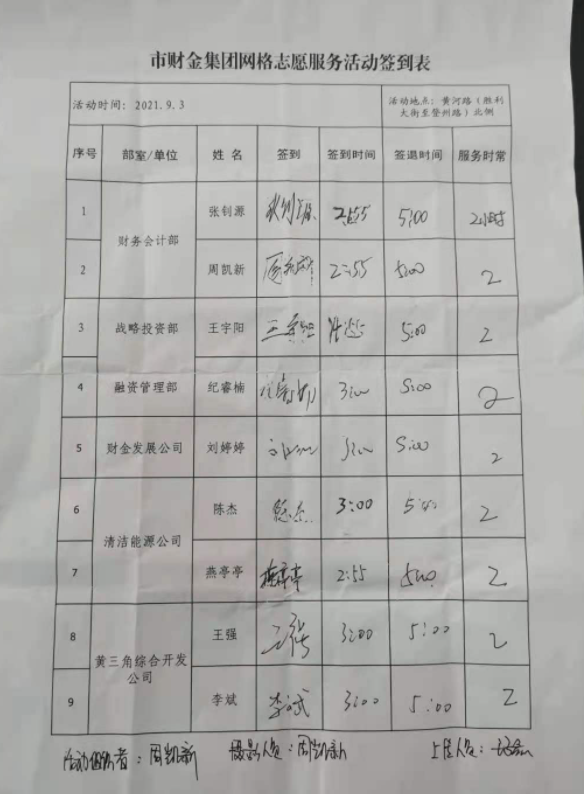 市财金集团网格志愿服务活动签到表
活动时间: 2021.9.3
活动地点: 黄河路 (胜利
大街至登州路) 北侧
序号 部室/单位 姓 名 签到 签到时间 签退时间 服务时常
1 财务会计部 张钊源 2:55 5:00 2小时
2 周凯新 周凯新 2:55 5:00 2
3 战略投资部 王宇阳 5:00 2
4 融资管理部 纪睿楠 3:00 5:00 2
5 财金发展公司 刘婷婷 3:00 5:00 2
6 清洁能源公司 陈杰 陈杰 3:00 5:00 2
7 燕亭亭 燕亭亭 2:55 5:00 2
8 黄三角综合开发
公司 王强 王强 3:00 5:00 2
9 李斌 李斌 3:00 5:00 2
活动组织者: 周凯新 摄影人员: 周凯新 上传人员: